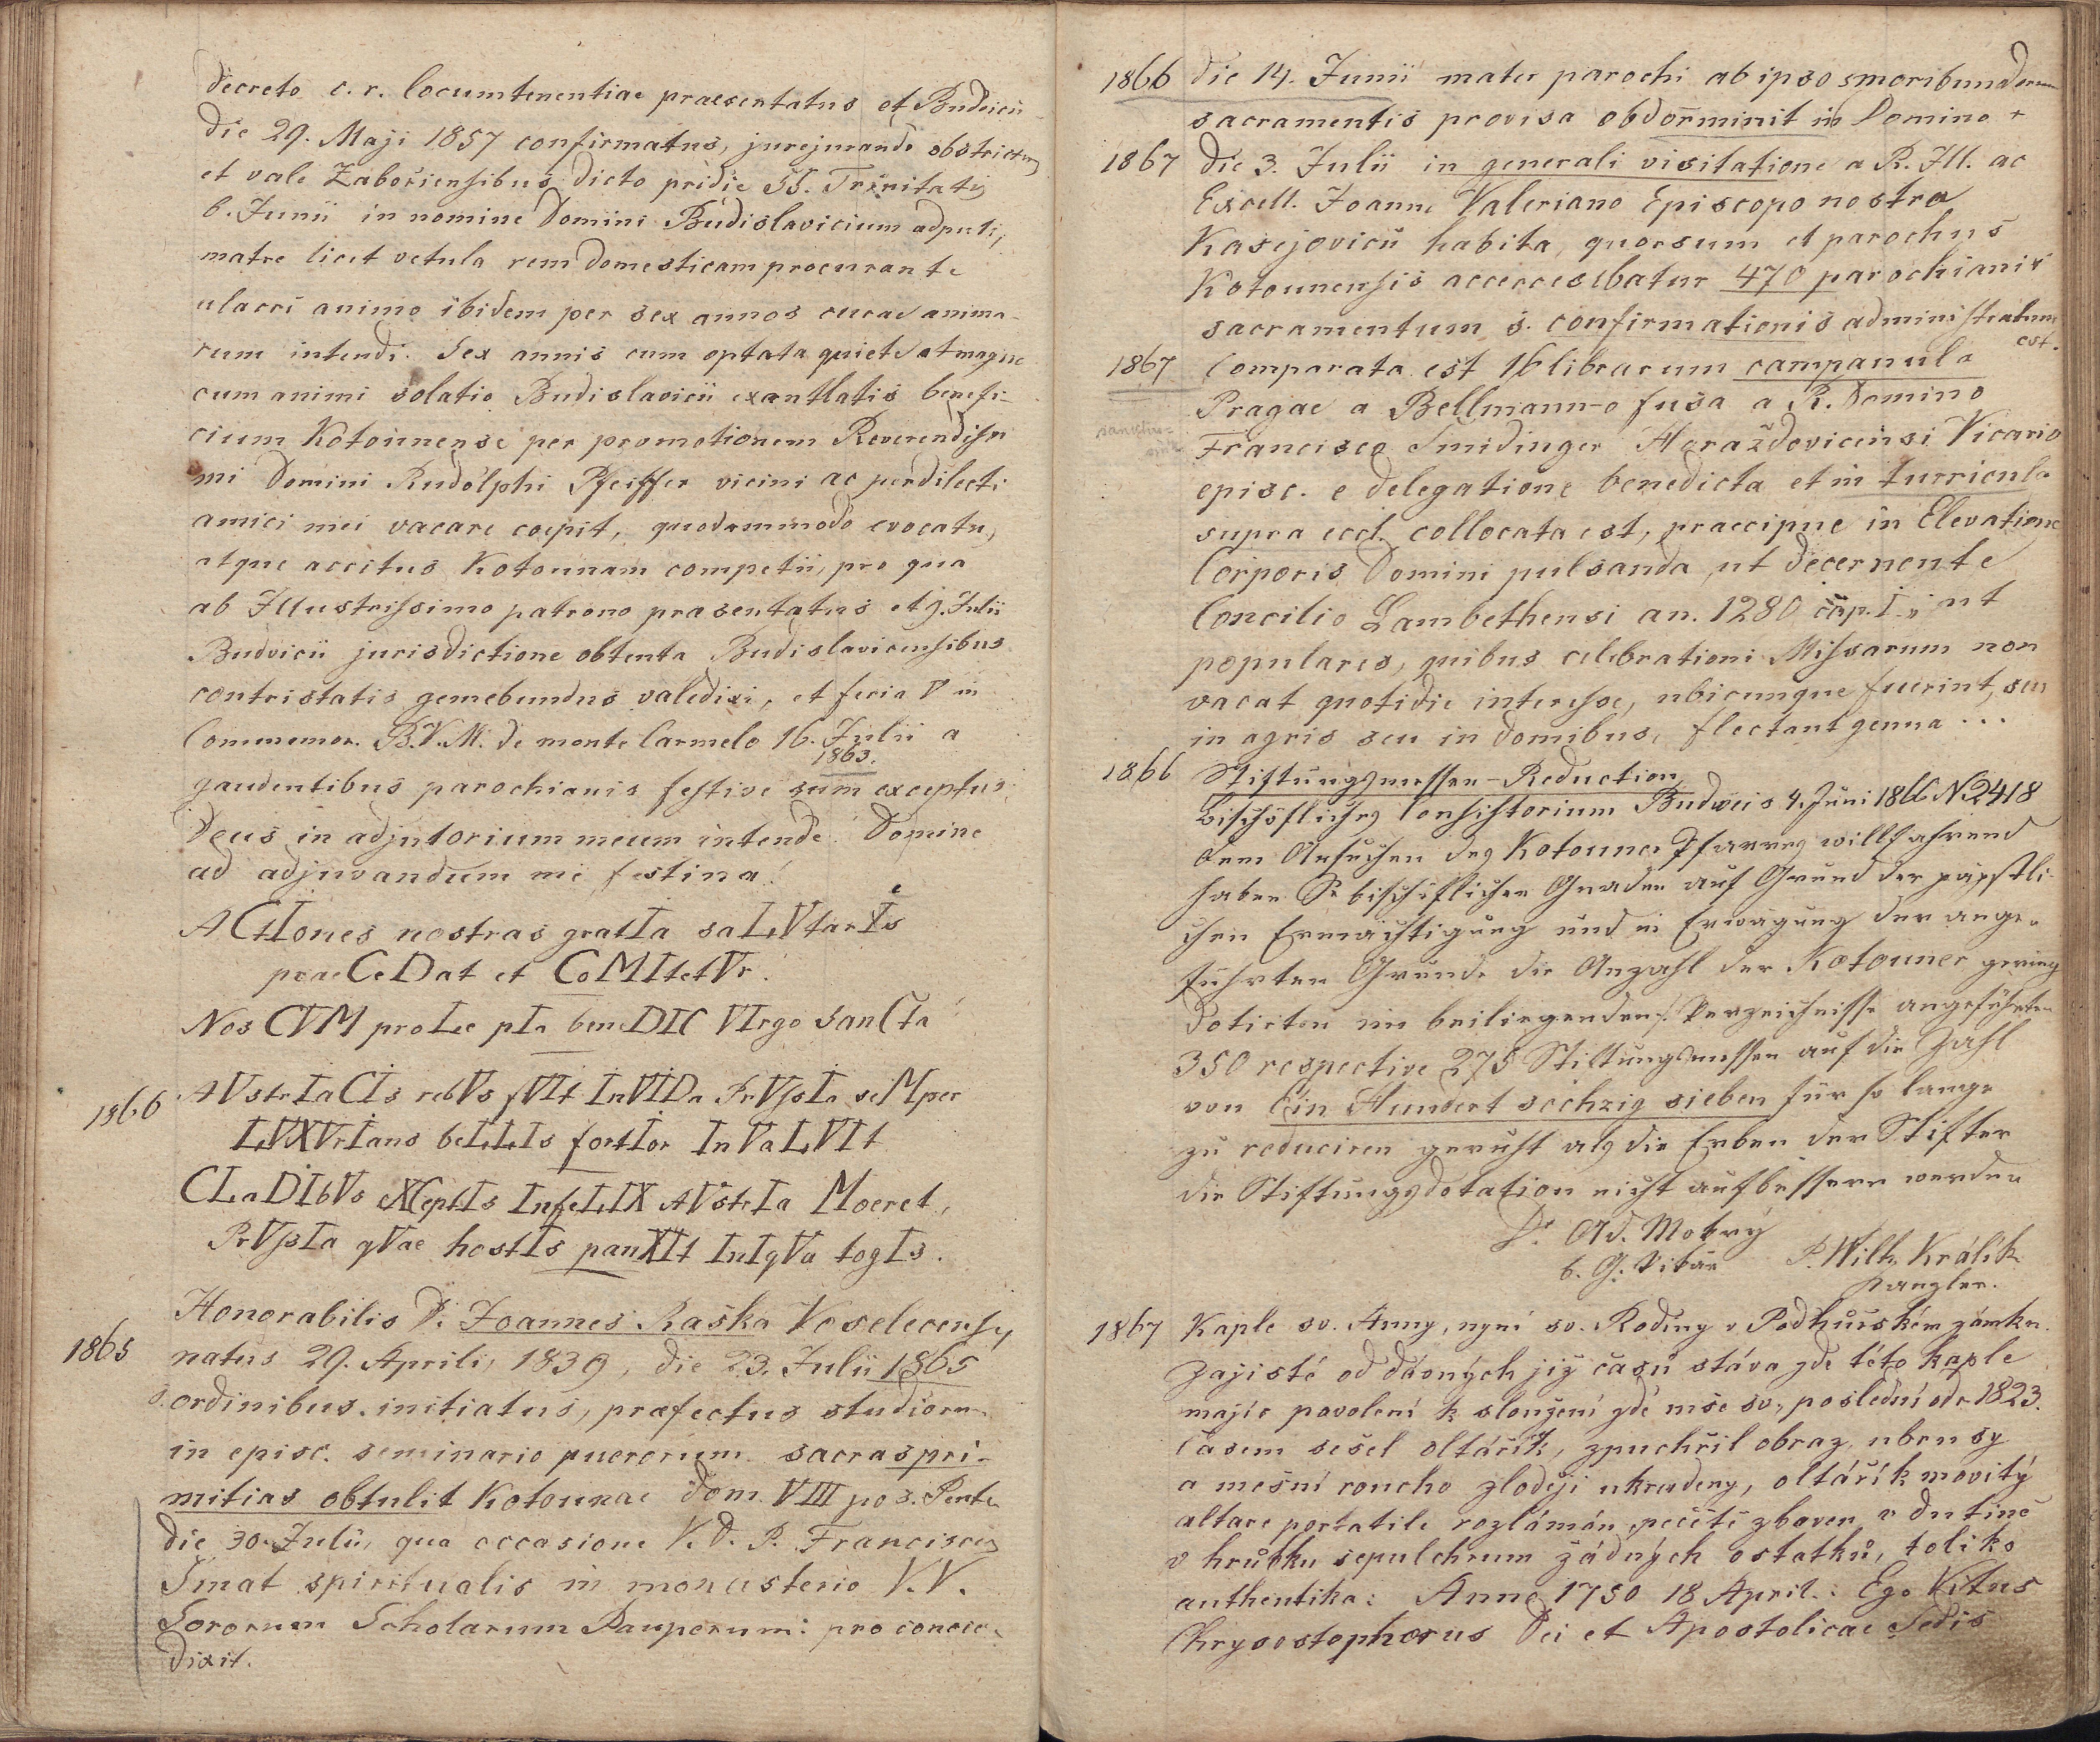 decreto c. r. locumtenentiae praesentatus et Budvicii
die 29. Maji 1857 confirmatus, jurejurando obstrictus
et vale Zabořiensibus dicto pridie SS. Trinitatis
6. Junii in nomine Domini Budislavicium adputi,
matre licet vetula rem domesticam procurante
alacri animo ibidem per sex annos curae anima-
rum intendi. Sex annis cum optata quiete et magno
cum animi solatio Budislavicii exantlatis benefi-
cium Kotounense per promotionem Reverendissi
mi Domini Rudolphi Pfeiffer vicini ac perdilecti
amici mei vacare coepit, quodammodo evocatus
atque accitus Kotounam competii, pro qua
ab Illustrissimo patrono praesentatus et 9. Julii
Budvicii jurisdictione obtenta Budislavicensibus
contristatis gemebundus valedixi, et feria V in
Commemor. B.V.M. de monte Carmelo 16. Julii a
1863.
gaudentibus parochianis festive sum exceptus;
Deus in adjutorium meum intende. Domine
ad adjuvandum me festina!
ACtIones nostras gratIa saLVtarIs
praeCeDat et CoMItetVr.
Nos CVM proLe pIa beneDIC VIrgo sanCta
1866 AVstrIaCIs rebVs fVIt InVIDa PrVssIa seMper
LVXVrIans beLLIs fortIor InVaLVIt
CLaDIbVs eXCeptIs InfeLIX AVstrIa Moeret,
PrVssIa qVae hostIs panXIt InIqVa togIs.
Honorabilis D. Joannes Raška Voselecensis
1865 natus 29. Aprilis 1839, die 23. Julii 1865
s. ordinibus initiatus, praefectus studiorum
in episc. seminario puerorum sacras pri-
mitias obtulit Kotounae Dom. VIII pos. Pente.
die 30. Julii, qua occasione V. D. P. Franciscus
Šmat spiritualis in monasterio V.V.
Sororum Scholarum Pauperum: pro concio-
dixit.
1866 die 14. Junii mater parochi ab ipso s moribundorum
sacramentis provisa obdorminit in Domino +
1867 die 3. Julii in generali visitatione a R. Ill. ac
Excell. Joanne Valeriano Episcopo nostro
Kasejovicii habita, quorsum et parochus
Kotounensis 470 parochianis
sacramentum s. confirmationis administratum
est.
1867 Comparata est 16 librarum campanula
Pragae a Bellmann-o fusa a R. Domino
Francisco Šmidinger Horažďovicensi Vicario
episc. e delegatione benedicta et in turricula
supra eccl. collocata est, praecipue in Elevatione
Corporis Domini pulsanda, ut decernente
Concilio Lambethensi an. 1280 cap. I. "ut
populares, quibus celebrationi Missarum non
vacat quotidie interesse, ubicunque fuerint, seu
in agris seu in domibus, flectant genua...
1866 Stiftungsmessen-Reduction
Bischöfliches Consistorium Budweis 4. Juni 1866 N 2418
Dem Ansuchen des Kotouner Pfarrers willfahrend
haben Se bischöflichen Gnaden auf Grund der päpstli-
chen Ermächtigung und in Erwägung der ange-
führten Gründe die Anzahl der Kotouner gering
dotirten im beiliegenden Verzeichnisse angeführten
350 respective 275 Stiftungsmessen auf die Zahl
von Ein Hundert sechzig sieben für so lange
zu reduciren geruht als die Erben der Stifter
die Stiftungsdotation nicht aufbessern werden
Dr. Ad. Mokrý
b. G. Vikär P. Wilh. Králik
Kanzler.
1867 Kaple sv. Anny, nyní sv. Rodiny v Podhůrském zámku.
Zajisté od dávných již časů stáva zde této kaple
majíc povolení k sloužení zde mše sv., poslední od r. 1823.
Časem sešel oltářík, zpuchřil obraz, ubrusy
a mešní roucho zloději ukradeny, oltářík movitý
altare portatile rozlámán, pečetě zbaven, v dutině
v hrůbku sepulchrum žádných ostatků, toliko
authentika: Anno 1750 18 April. Ego Vitus
Chrysostophorus Dei et Apostolicae Sedis